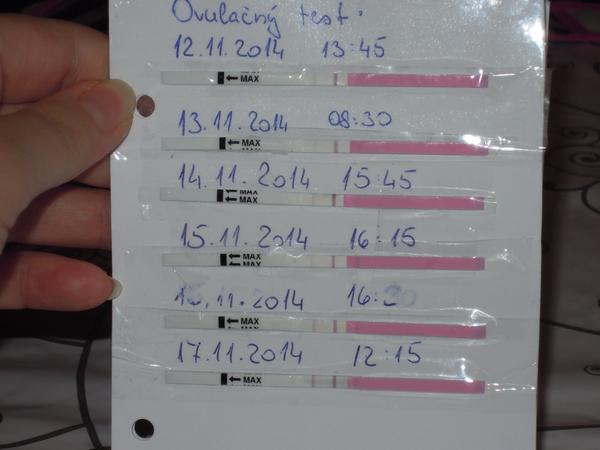 Ovulačný test.
12.11.2014 13:45
← MAX
13.11.2014 08:30
← MAX
14.11.2014 15:45
MAX
← MAX
15.11.2014 16:15
← MAX
← MAX
← MAX
17.11.2014 12:15
← MAX